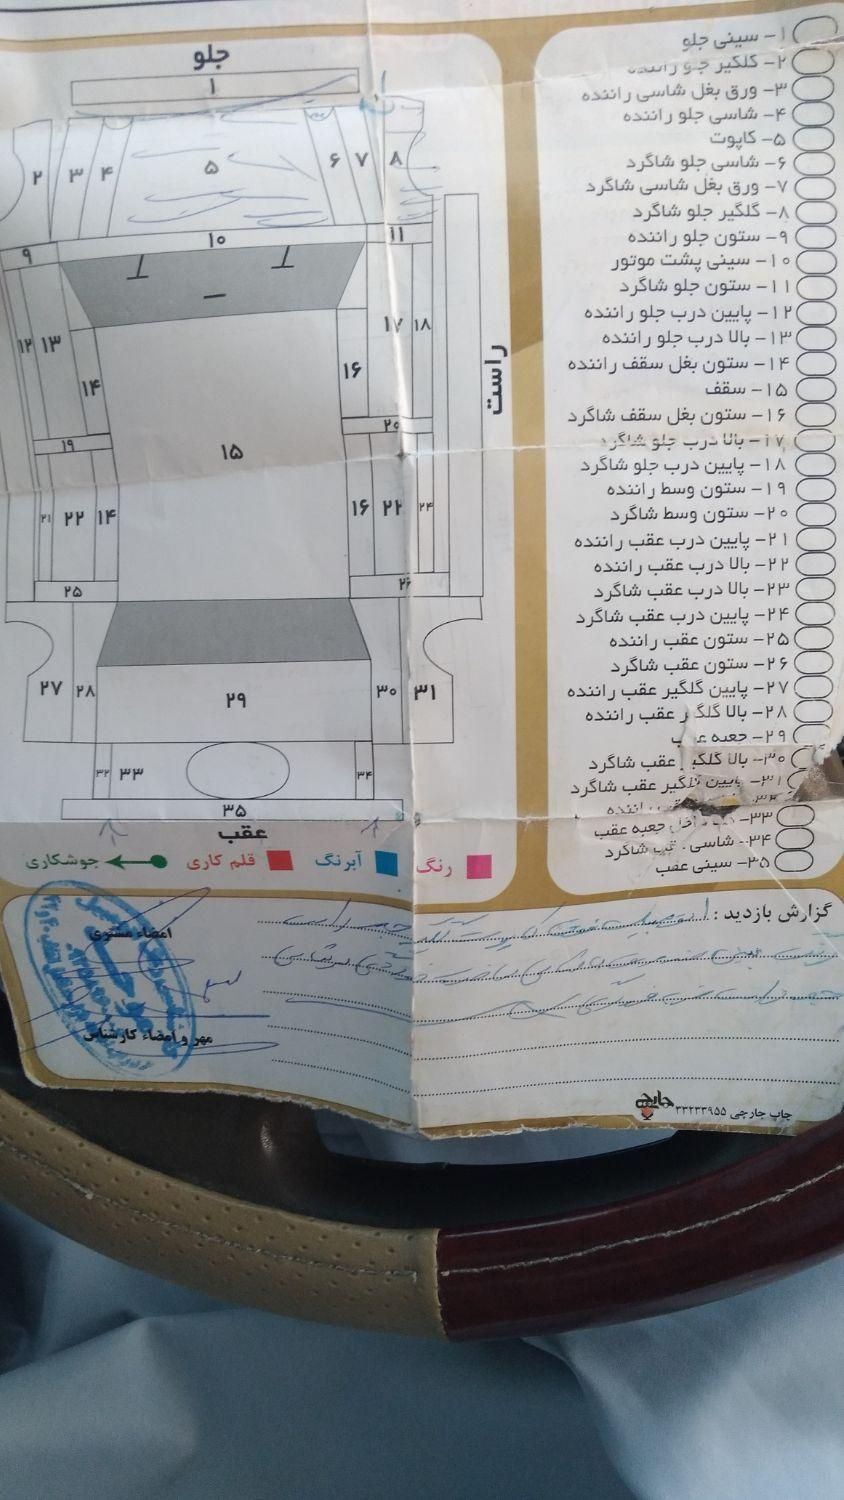 جلو
۱
۲ ۳ ۴ ۵ ۶ ۷ ۸
۹ ۱۰ ۱۱
۱۲ ۱۳ ۱۷ ۱۸
۱۴ ۱۶
راست
۱۵
۱۹ ۲۰
۲۱ ۲۲ ۱۴ ۱۶ ۲۲ ۲۴
۲۵ ۲۶
۲۷ ۲۸ ۲۹ ۳۰ ۳۱
۳۲ ۳۳ ۳۴
۳۵
عقب
رنگ
آبرنگ
قلم کاری
جوشکاری
۱- سینی جلو
۲- گلگیر جلو راننده
۳- ورق بغل شاسی راننده
۴- شاسی جلو راننده
۵- کاپوت
۶- شاسی جلو شاگرد
۷- ورق بغل شاسی شاگرد
۸- گلگیر جلو شاگرد
۹- ستون جلو راننده
۱۰- سینی پشت موتور
۱۱- ستون جلو شاگرد
۱۲- پایین درب جلو راننده
۱۳- بالا درب جلو راننده
۱۴- ستون بغل سقف راننده
۱۵- سقف
۱۶- ستون بغل سقف شاگرد
۱۷- بالا درب جلو شاگرد
۱۸- پایین درب جلو شاگرد
۱۹- ستون وسط راننده
۲۰- ستون وسط شاگرد
۲۱- پایین درب عقب راننده
۲۲- بالا درب عقب راننده
۲۳- بالا درب عقب شاگرد
۲۴- پایین درب عقب شاگرد
۲۵- ستون عقب راننده
۲۶- ستون عقب شاگرد
۲۷- پایین گلگیر عقب راننده
۲۸- بالا گلگیر عقب راننده
۲۹- جعبه عقب
۳۰- بالا گلگیر عقب شاگرد
۳۱- پایین گلگیر عقب شاگرد
۳۲- راننده
۳۳- داخل جعبه عقب
۳۴- شاسی عقب شاگرد
۳۵- سینی عقب
گزارش بازدید :
امضاء مشتری
مهر و امضاء کارشناس
چاپ جارچی ۳۳۲۳۳۹۵۵
جارچی